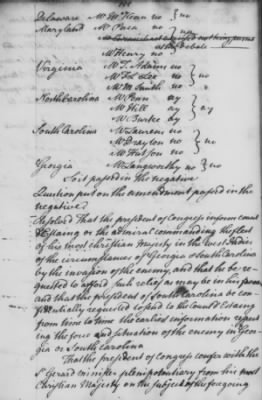 Delaware Mr McKean no } no
Maryland Mr Paca no
Mr Henry no
Virginia Mr T. Adams no
Mr F L Lee no } no
Mr M Smith no
North Carolina Mr Penn ay
Mr Hill ay } ay
Mr Burke ay
South Carolina Mr Laurens no
Mr Drayton no } no
Mr Hutson no
Georgia Mr Langworthy no } no
So it passed in the negative
Question put on the amendment passed in the
negative
Resolved That the president of Congress inform count
D'Estaing or the admiral commanding the fleet
of his most christian majesty in the West Indies
of the circumstances of Georgia & South Carolina
by the invasion of the enemy, and that he be re-
quested to afford such relief as may be in his power
and that the president of South Carolina be con-
fidentially requested to the Count d'Estaing
from time to time the earliest information respect
ing the force and situation of the enemy in Geor-
gia or South Carolina
That the president of Congress confer with the
Sr Gerard minister plenipotentiary from his most
Christian Majesty on the subject of the foregoing